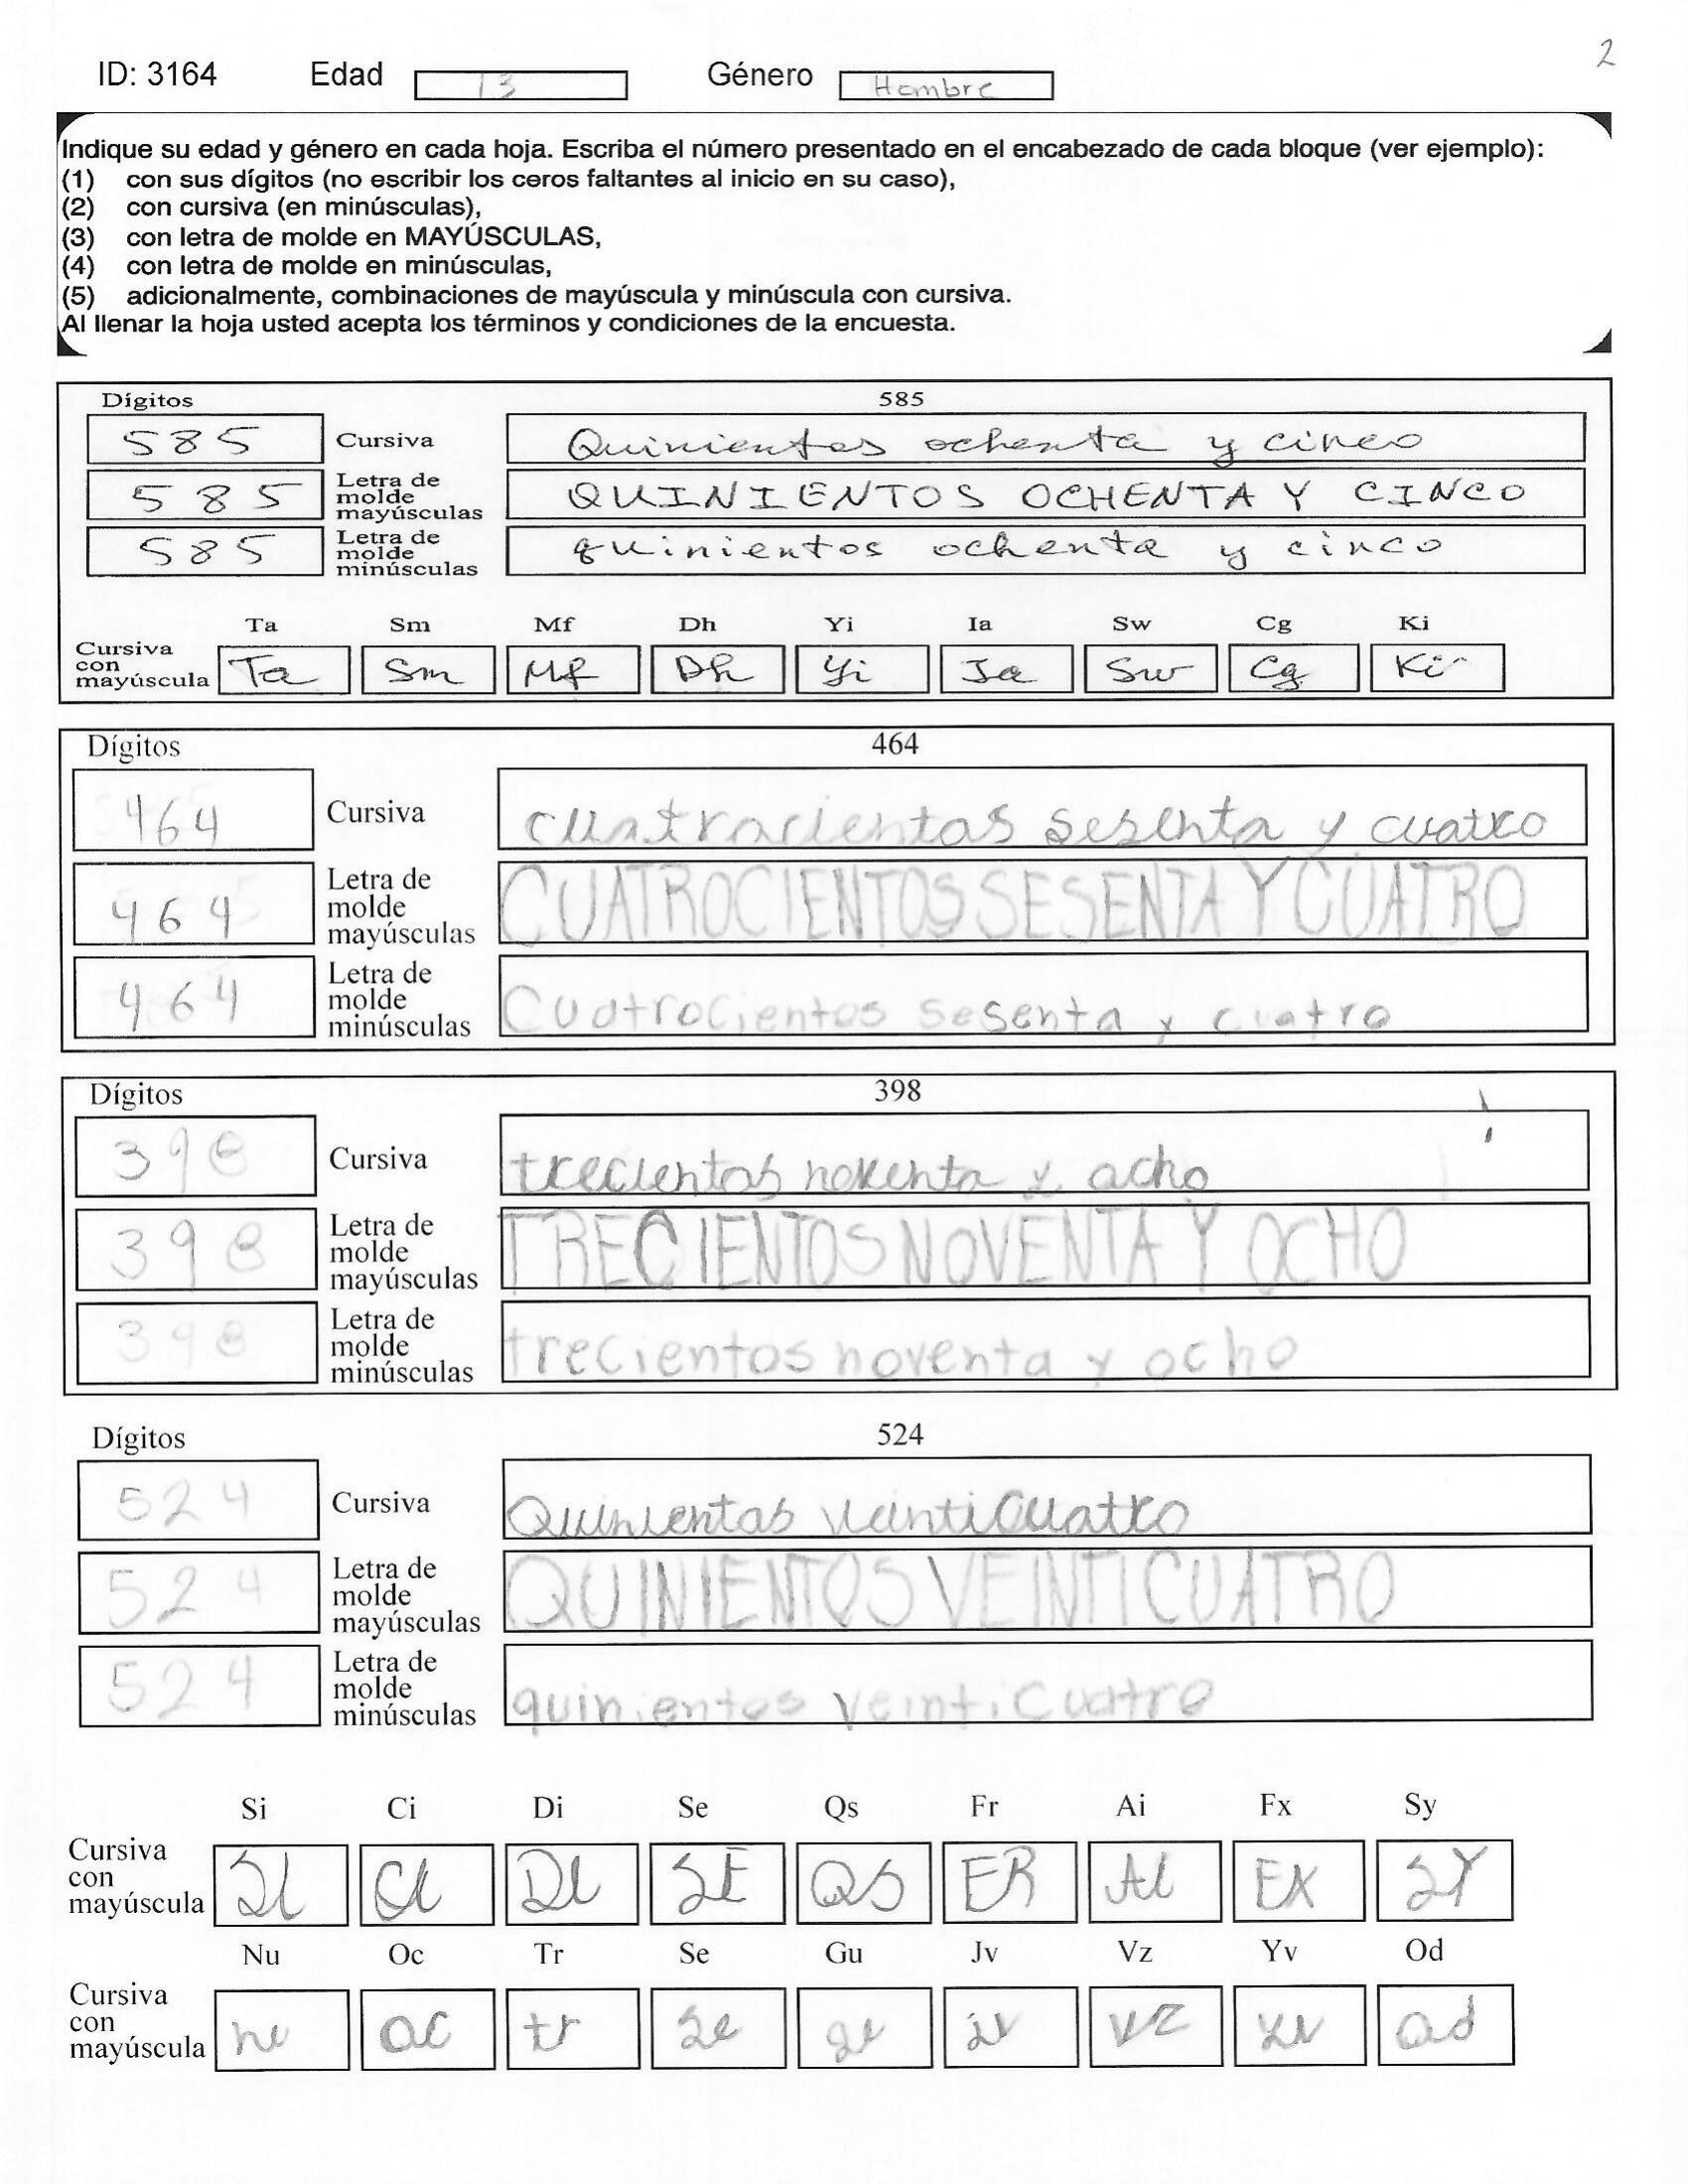 2
ID: 3164 Edad 13 Género Hombre
Indique su edad y género en cada hoja. Escriba el número presentado en el encabezado de cada bloque (ver ejemplo):
(1) con sus dígitos (no escribir los ceros faltantes al inicio en su caso),
(2) con cursiva (en minúsculas),
(3) con letra de molde en MAYÚSCULAS,
(4) con letra de molde en minúsculas,
(5) adicionalmente, combinaciones de mayúscula y minúscula con cursiva.
Al llenar la hoja usted acepta los términos y condiciones de la encuesta.
Dígitos 585
585 Cursiva Quinientos ochenta y cinco
585 Letra de molde mayúsculas QUINIENTOS OCHENTA Y CINCO
585 Letra de molde minúsculas quinientos ochenta y cinco
Ta Sm Mf Dh Yi Ia Sw Cg Ki
Cursiva con mayúscula Ta Sm Mf Dh Yi Ia Sw Cg Ki
Dígitos 464
464 Cursiva cuatrocientos sesenta y cuatro
464 Letra de molde mayúsculas CUATROCIENTOS SESENTA Y CUATRO
464 Letra de molde minúsculas Cuatrocientos sesenta y cuatro
Dígitos 398
398 Cursiva trecientos noventa y ocho
398 Letra de molde mayúsculas TRECIENTOS NOVENTA Y OCHO
398 Letra de molde minúsculas trecientos noventa y ocho
Dígitos 524
524 Cursiva Quinientos veinticuatro
524 Letra de molde mayúsculas QUINIENTOS VEINTICUATRO
524 Letra de molde minúsculas quinientos veinticuatro
Si Ci Di Se Qs Fr Ai Fx Sy
Cursiva con mayúscula Si Ci Di SE QS ER Ai EX SY
Nu Oc Tr Se Gu Jv Vz Yv Od
Cursiva con mayúscula nu oc tr se gu jv vz yv od